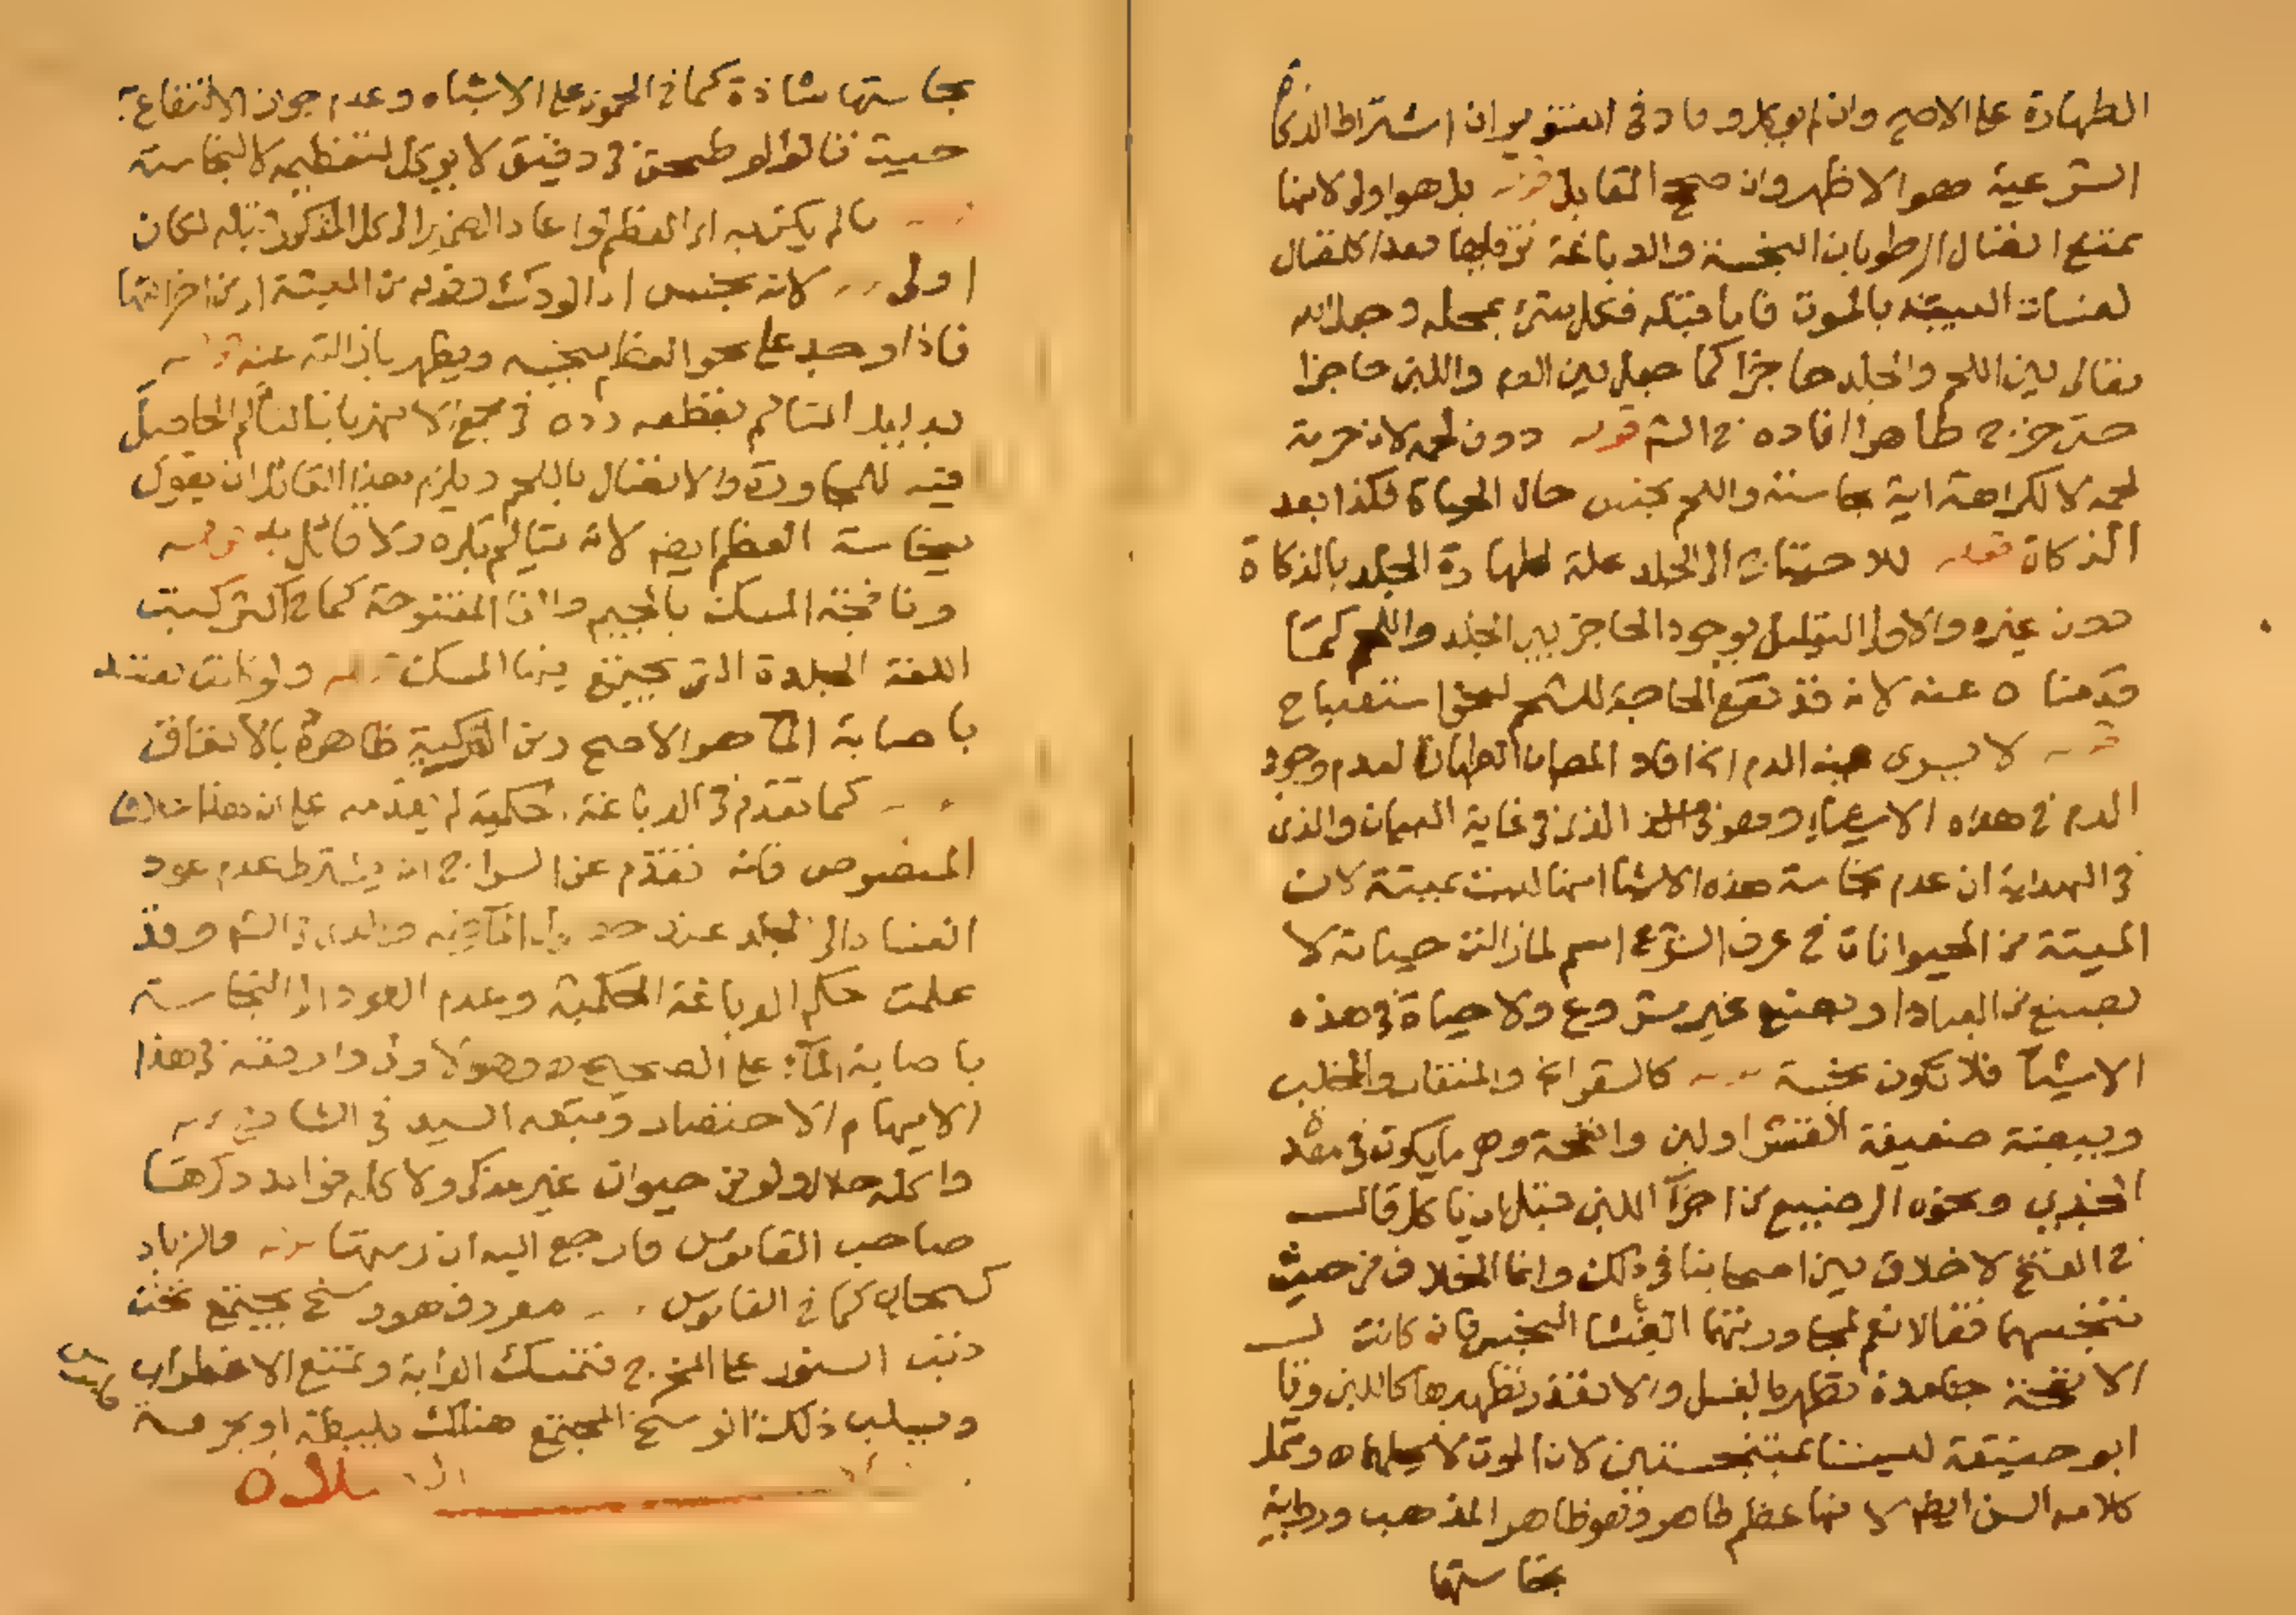 الطهارة على الاصح وان لم يوكل وما د فى التنوير ان اشتراط الذكاة
الشرعية هو الاظهر وان صح المقابل قوله بل هو اولى لانها
تمنع اتصال الرطوبات النجسة والدباغة تزيلها بعد الاتصال
لفساد البنية بالموت فاما قبله فكل شئ بمحله وجعل الله
تعالى بين اللحم والجلد حاجزا كما جعل بين الدم واللبن حاجزا
حتى خرج طاهرا افاده في الشرح قوله دون لحمه لان حرمة
لحمه لا لكرامته اية نجاسته واللحم نجس حال الحياة فكذا بعد
الذكاة قوله للاحتياج الى الجلد علة لطهارة الجلد بالذكاة
دون غيره والاولى التعليل بوجود الحاجز بين الجلد واللحم كما
قدمناه عنه لانه قد تقع الحاجة للشحم لنحو استصباح
قوله لا يسرى فيه الدم انما افاد المصـ الطهارة لعدم وجود
الدم في هذه الاشياء وهو الذى في غاية البيان والذى
فى الهداية ان عدم نجاسة هذه الاشيا انها ليست بميتة لان
الميتة من الحيوانات في عرف الشرع اسم لما زالت حياته لا
بصنع من العباد او بصنع غير مشروع ولا حياة فى هذه
الاشيا فلا تكون نجسة قوله كالشعر والمنقار والمخلب
وبيضة ضعيفة القشر ولبن وانفحة وهو ما يكون في معدة
الجدي ونحوه الرضيع من اجزا اللبن قبل ان ياكل قال
في الفتح لا خلاف بين اصحابنا في ذلك وانما الخلاف من حيث
تنجسهما فقالا نعم لمجاورتهما الغشا النجس فان كانت
الانفحة جامدة تطهر بالغسل والا تعذر تطهيرها كاللبن وقال
ابو حنيفة ليستا بمتنجستين لان الموت لا يحلهما وشمل
كلامه السن ايضا لانها عظم طاهر وهو ظاهر المذهب ورواية
نجاستها
نجاستها شاذة كما في الحموى على الاشباه وعدم جواز الانتفاع به
حيث قالوا لو طحن في دقيق لا يوكل لتعظيمه لا لنجاسته
ما لم يكن به اى العظم لو اعاد الضمير الى كل المذكور قبله لكان
اولى قوله لانه نجس اى الودك وقوله من الميتة اى من اجزائها
فاذا وجد على نحو العظم ينجسه ويطهر بازالته عنه قوله
بدليل التالم بقطعه رده في مجمع الانهر بان التالم الحاصل
فيه للمجاورة والاتصال باللحم ويلزم هذا القائل ان يقول
بنجاسة العظم ايضا لانه يتالم بكسره ولا قائل به قوله
ونافجة المسك بالجيم والفا المفتوحة كما في اكثر كتب
اللغة الجلدة التى يجتمع فيها المسك قوله ولو كانت تفسد
باصابة الماء هو الاصح ومن الذكية طاهرة بالاتفاق
قوله كما تقدم في الدباغة الحكمية لم يقدمه على ان هذا خلاف
المنصوص فانه تقدم عن السراج انه يشترط عدم عود
الفساد الى الجلد عند حصول الماء فيه وقد
علمت حكم الدباغة الحكمية وعدم العود الى النجاسة
باصابة الماء على الصحيح وهو لا وقد اوقعه في هذا
الايهام الاختصار وتبعه السيد في الثانى قوله
واكله حلال ولو من حيوان غير مذكى ولاكله فوايد ذكرها
صاحب القاموس فارجع اليه ان رمتها قوله والزباد
كسحاب كما في القاموس قوله معروف هو وسخ يجتمع تحت
ذنب السنور على المخرج فتمسك الدابة وتمنع الاضطراب
ويسلب ذلك الوسخ المجتمع هنالك بليطة او بخرقة